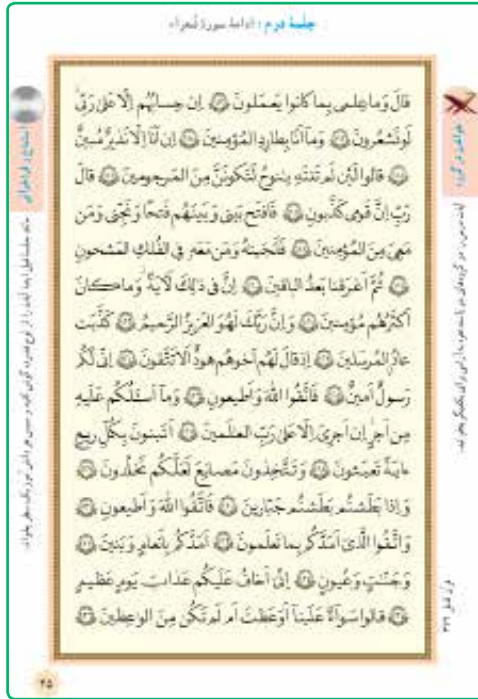 جلسهٔ دوم : ادامهٔ سورهٔ شعراء
قالَ وَما عِلمی بِما کانوا یَعمَلونَ ۝ اِن حِسابُهُم اِلّا عَلیٰ رَبّی
لَو تَشعُرونَ ۝ وَما اَنَا بِطارِدِ المُؤمِنینَ ۝ اِن اَنَا اِلّا نَذیرٌ مُبینٌ
۝ قالوا لَئِن لَم تَنتَهِ یا نوحُ لَتَکونَنَّ مِنَ المَرجومینَ ۝ قالَ
رَبِّ اِنَّ قَومی کَذَّبونِ ۝ فَافتَح بَینی وَبَینَهُم فَتحًا وَنَجِّنی وَمَن
مَعِیَ مِنَ المُؤمِنینَ ۝ فَاَنجَیناهُ وَمَن مَعَهُ فِی الفُلکِ المَشحونِ
۝ ثُمَّ اَغرَقنا بَعدُ الباقینَ ۝ اِنَّ فی ذٰلِکَ لَآیَةً وَما کانَ
اَکثَرُهُم مُؤمِنینَ ۝ وَاِنَّ رَبَّکَ لَهُوَ العَزیزُ الرَّحیمُ ۝ کَذَّبَت
عادٌ المُرسَلینَ ۝ اِذ قالَ لَهُم اَخوهُم هودٌ اَلا تَتَّقونَ ۝ اِنّی لَکُم
رَسولٌ اَمینٌ ۝ فَاتَّقُوا اللهَ وَاَطیعونِ ۝ وَما اَسئَلُکُم عَلَیهِ
مِن اَجرٍ اِن اَجرِیَ اِلّا عَلیٰ رَبِّ العٰلَمینَ ۝ اَتَبنونَ بِکُلِّ ریعٍ
ءایَةً تَعبَثونَ ۝ وَتَتَّخِذونَ مَصانِعَ لَعَلَّکُم تَخلُدونَ ۝
وَاِذا بَطَشتُم بَطَشتُم جَبّارینَ ۝ فَاتَّقُوا اللهَ وَاَطیعونِ ۝
وَاتَّقُوا الَّذی اَمَدَّکُم بِما تَعلَمونَ ۝ اَمَدَّکُم بِاَنعامٍ وَبَنینَ ۝
وَجَنّاتٍ وَعُیونٍ ۝ اِنّی اَخافُ عَلَیکُم عَذابَ یَومٍ عَظیمٍ
۝ قالوا سَواءٌ عَلَینا اَوَعَظتَ اَم لَم تَکُن مِنَ الواعِظینَ ۝
خواندن در گروه
۴۵